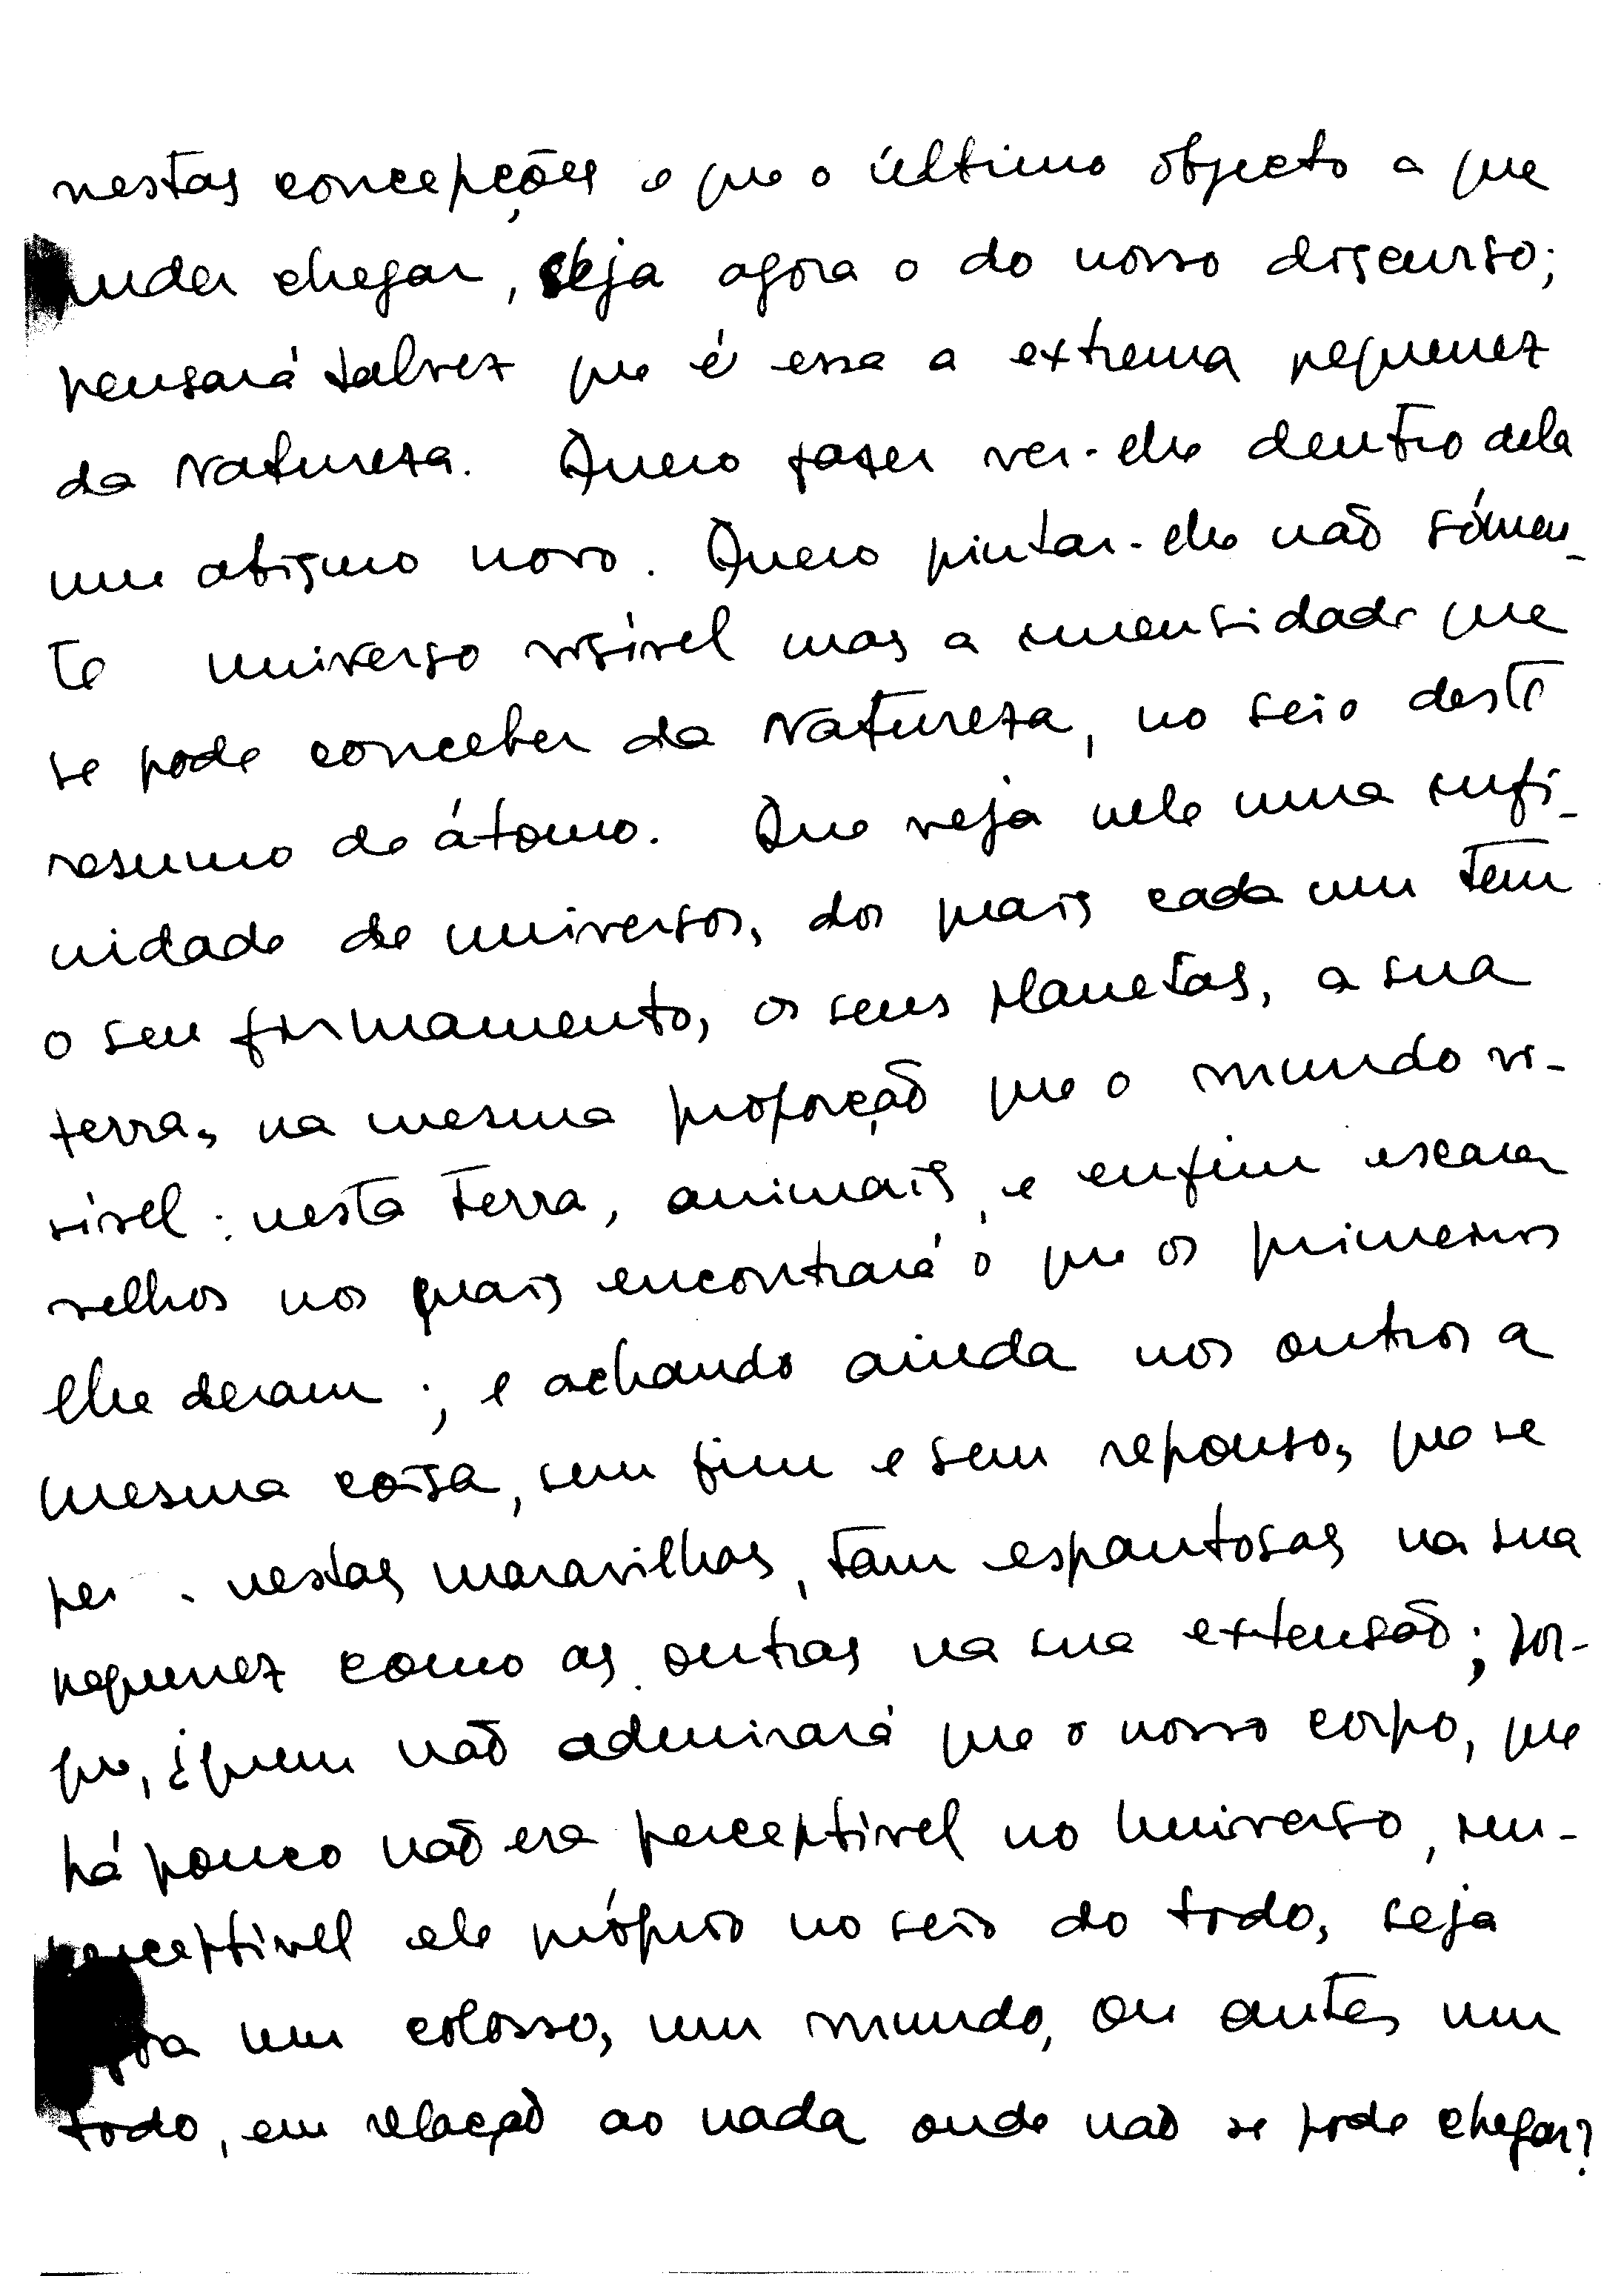 nestas concepções e que o último objecto a que
puder chegar, seja agora o do nosso discurso;
pensará talvez que é essa a extrema pequenez
da Natureza. Quero fazer ver-lhe dentro dela
um abismo novo. Quero pintar-lhe não sómen-
te universo visível mas a imensidade que
se pode conceber da Natureza, no seio deste
resumo de átomo. Que veja nele uma infi-
nidade de universos, dos quais cada um tem
o seu firmamento, os seus planetas, a sua
terra, na mesma proporção que o mundo vi-
sível; nesta terra, animais, e enfim escara
velhos nos quais encontrará o que os primeiros
lhe deram; e achando ainda nos outros a
mesma coisa, sem fim e sem repouso, que se
per nestas maravilhas, tam espantosas na sua
pequenez como as outras na sua extensão; por-
que, ¿quem não admirará que o nosso corpo, que
há pouco não era perceptível no Universo, im-
perceptível ele próprio no seio do todo, seja
um colosso, um mundo, ou antes um
todo, em relação ao nada onde não se pode chegar?